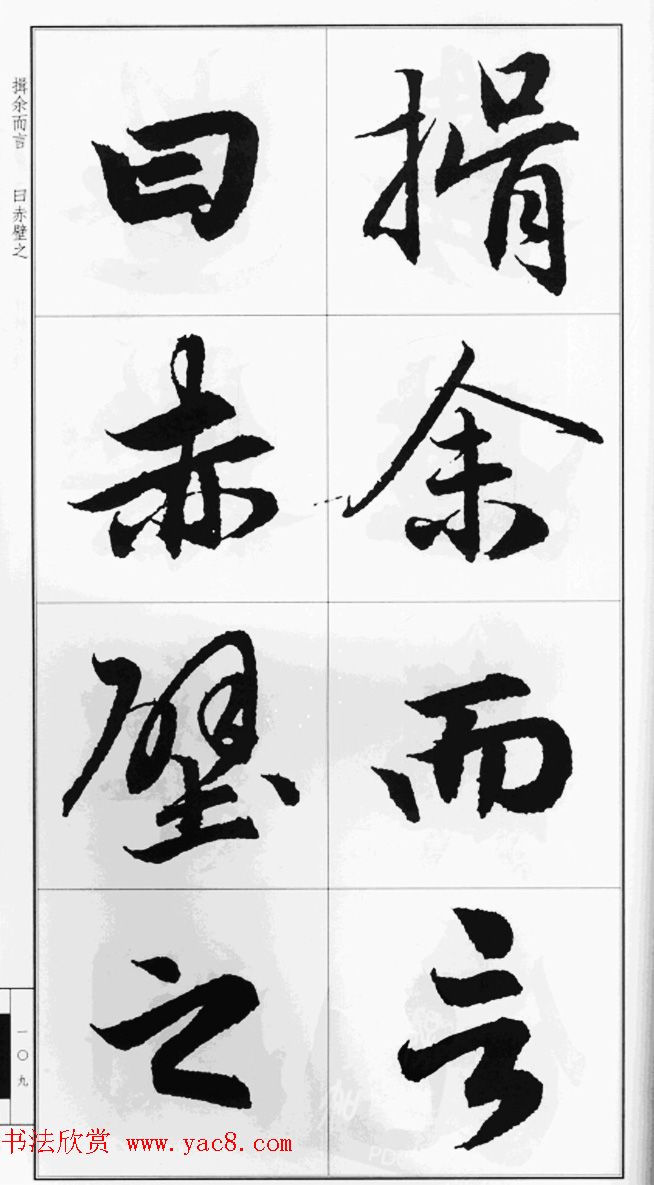 揖余而言
曰赤壁之
揖余而言 曰赤壁之
一〇九
书法欣赏 www.yac8.com